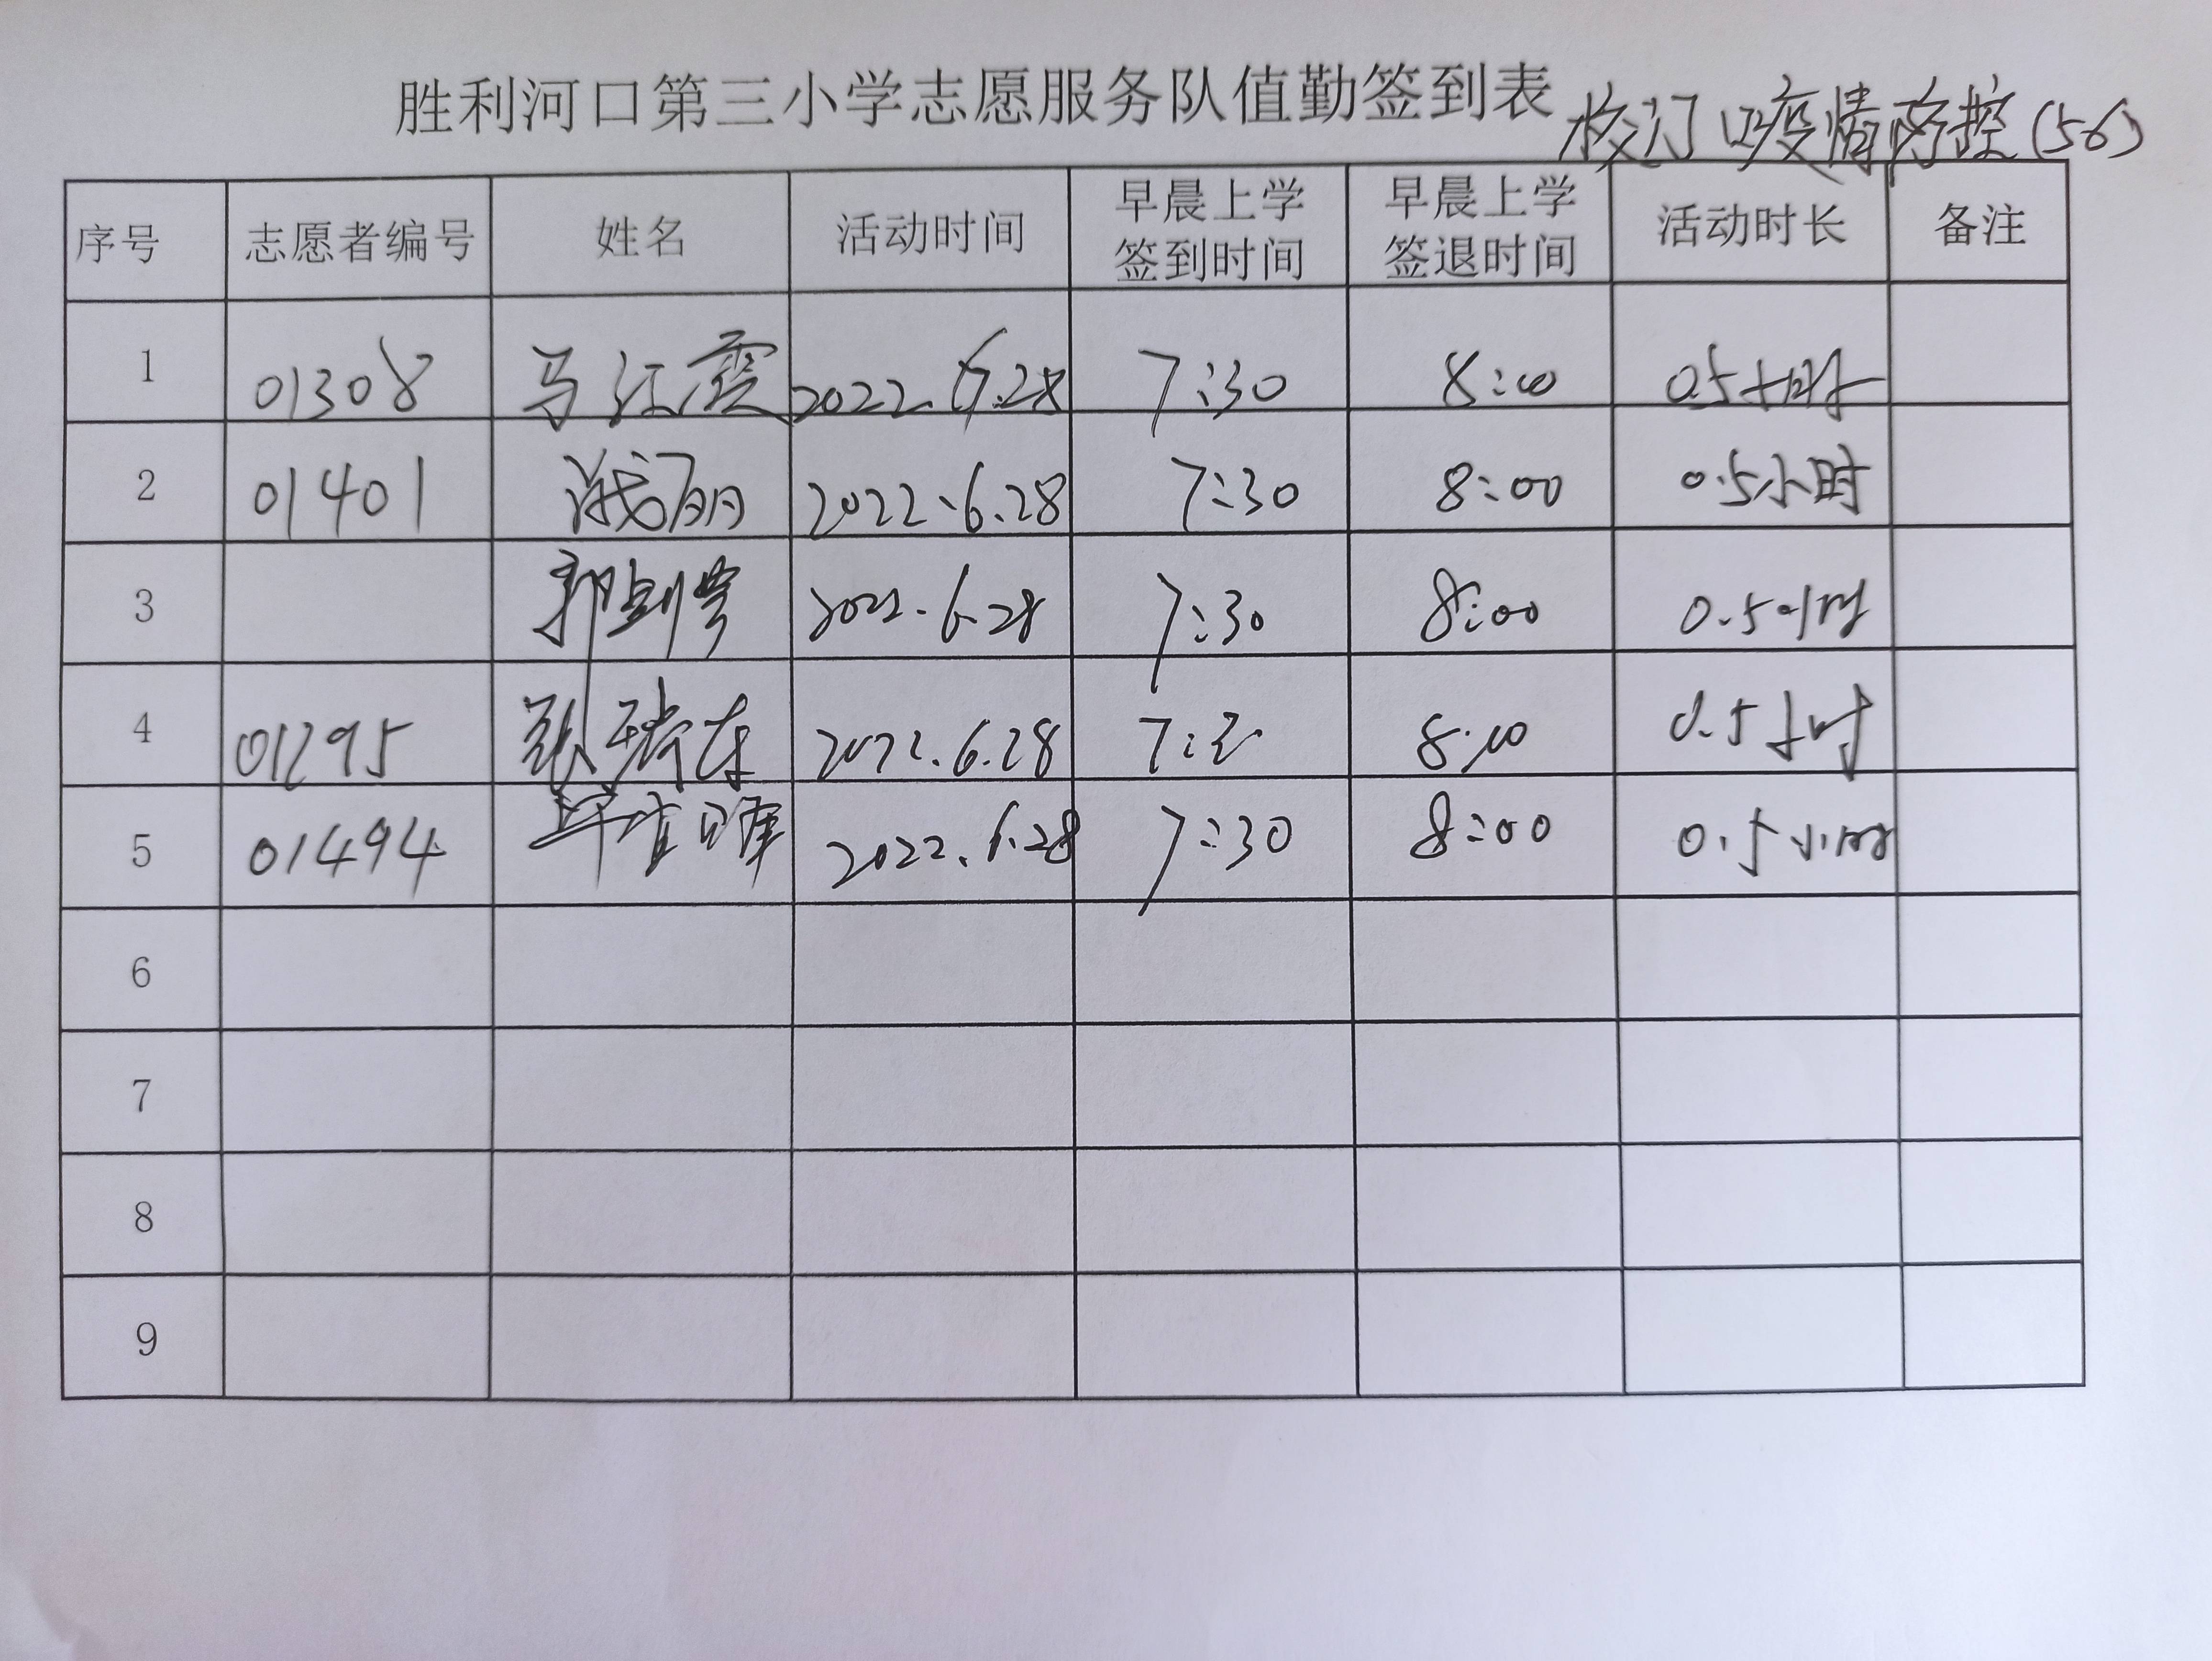 胜利河口第三小学志愿服务队值勤签到表 校门口疫情防控(56)
序号 志愿者编号 姓名 活动时间 早晨上学签到时间 早晨上学签退时间 活动时长 备注
1 01308 马江霞 2022.6.28 7:30 8:00 0.5小时
2 01401 丽 2022.6.28 7:30 8:00 0.5小时
3 郭剑 2022.6.28 7:30 8:00 0.5小时
4 01295 2022.6.28 7:30 8:00 0.5小时
5 01494 2022.6.28 7:30 8:00 0.5小时
6
7
8
9